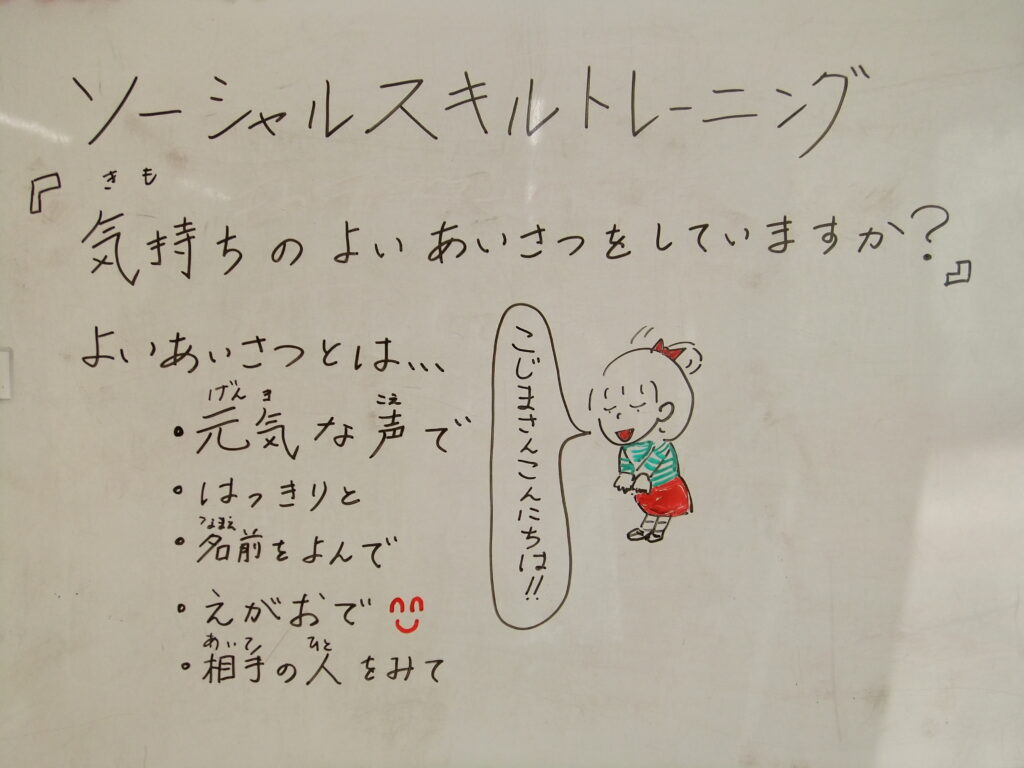 ソーシャルスキルトレーニング
きも
『気持ちのよいあいさつをしていますか?』
よいあいさつとは...
げんき こえ
・元気な声で
・はっきりと
なまえ
・名前をよんで
・えがおで
あいて ひと
・相手の人をみて
こじまさんこんにちは!!